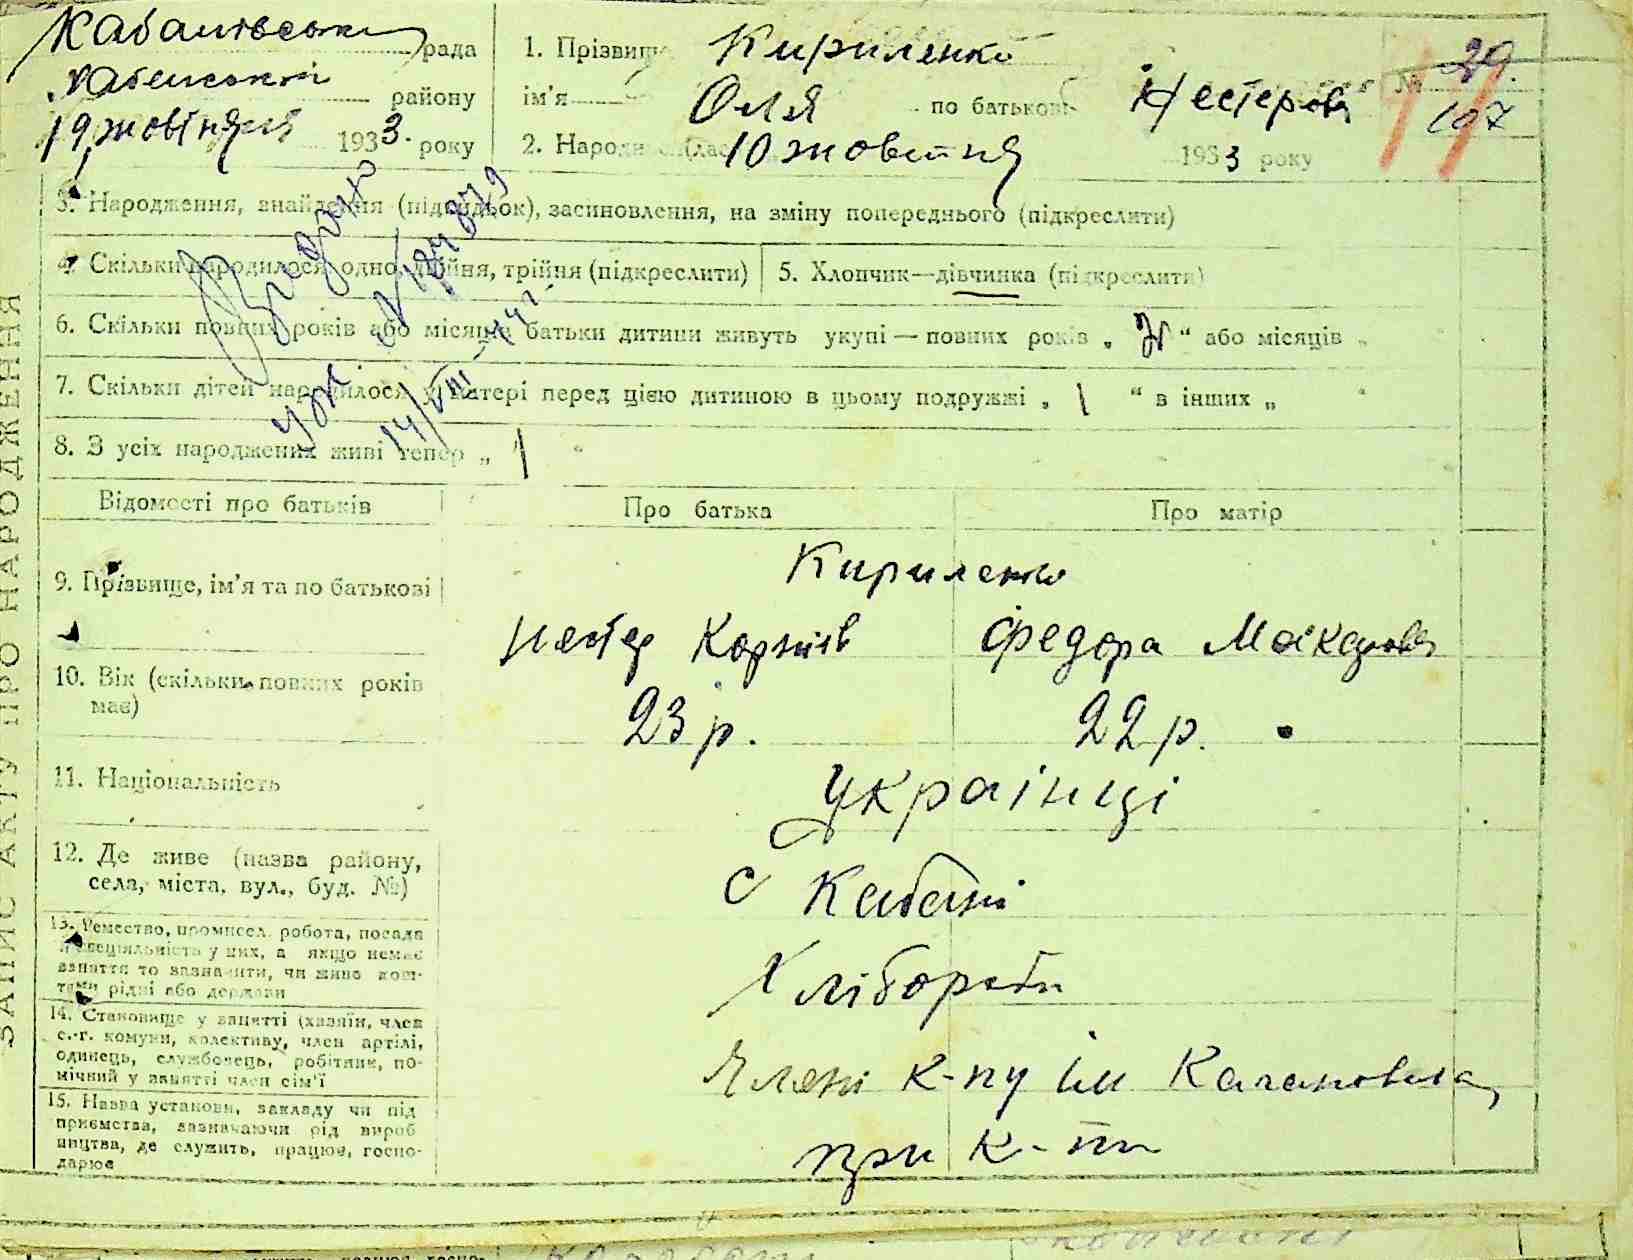 рада
району
19 жовтня 1933. року
1. Прізвище Кириленко
ім'я Оля по батькові Нестерова
2. Народи 10 жовтня 1933 року
№ 29.
107
3. Народження, знайдення (підкидьок), засиновлення, на зміну попереднього (підкреслити)
4. Скільки народилося одно, двійня, трійня (підкреслити)
5. Хлопчик—дівчинка (підкреслити)
6. Скільки повних років або місяців батьки дитини живуть укупі — повних років „ “ або місяців „
7. Скільки дітей народилося у матері перед цією дитиною в цьому подружжі „ 1 “ в інших „ “
8. З усіх народжених живі тепер „ 1 “
14/VIII
Відомості про батьків
Про батька
Про матір
9. Прізвище, ім'я та по батькові
Кириленко
Нестер Корніїв
Федора Макарова
10. Вік (скільки повних років
має)
23 р.
22 р.
11. Національність
Українці
12. Де живе (назва району,
села, міста, вул., буд. №)
с Кабані
13. Ремество, промисел, робота, посада
і спеціяльність у них, а якщо немає
заняття то зазначити, чи живе кош-
тами рідні або держави
Хлібороби
14. Становище у занятті (хазяїн, член
с.-г. комуни, колективу, член артілі,
одинець, службовець, робітник, по-
мічний у занятті член сім'ї
Члени к-пу ім Кагановича,
15. Назва установи, закладу чи під
приємства, зазначаючи рід вироб
ництва, де служить, працює, госпо-
дарює
при к-пі
ЗАПИС АКТУ ПРО НАРОДЖЕННЯ